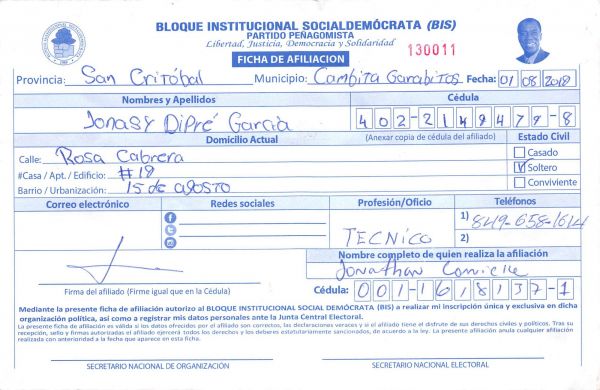 BLOQUE INSTITUCIONAL SOCIALDEMÓCRATA (BIS)
PARTIDO PEÑAGOMISTA
Libertad, Justicia, Democracia y Solidaridad
130011
FICHA DE AFILIACION
Provincia: San Critóbal Municipio: Cambita Garabitos Fecha: 01 08 2018
Nombres y Apellidos Cédula
Jonasy Dipré Garcia 402-2149479-8
Domicilio Actual (Anexar copia de cédula del afiliado) Estado Civil
Calle: Rosa Cabrera Casado
#Casa / Apt. / Edificio: #19 Soltero
Barrio / Urbanización: 15 de agosto Conviviente
Correo electrónico Redes sociales Profesión/Oficio Teléfonos
1) 849-658-1614
TECNICO 2)
Nombre completo de quien realiza la afiliación
Jonathan
Firma del afiliado (Firme igual que en la Cédula) Cédula: 001-1618137-1
Mediante la presente ficha de afiliación autorizo al BLOQUE INSTITUCIONAL SOCIAL DEMÓCRATA (BIS) a realizar mi inscripción única y exclusiva en dicha
organización política, así como a registrar mis datos personales ante la Junta Central Electoral.
La presente ficha de afiliación es válida si los datos ofrecidos por el afiliado son correctos, las declaraciones veraces y si el afiliado tiene el disfrute de sus derechos civiles y políticos. Tras su
recepción, sello y firmas autorizadas el afiliado ejercerá todos los derechos y los deberes estatutariamente sancionados, de acuerdo a la ley. La presente afiliación anula cualquier afiliación
realizada con anterioridad a la fecha que aparece en esta ficha.
SECRETARIO NACIONAL DE ORGANIZACIÓN SECRETARIO NACIONAL ELECTORAL